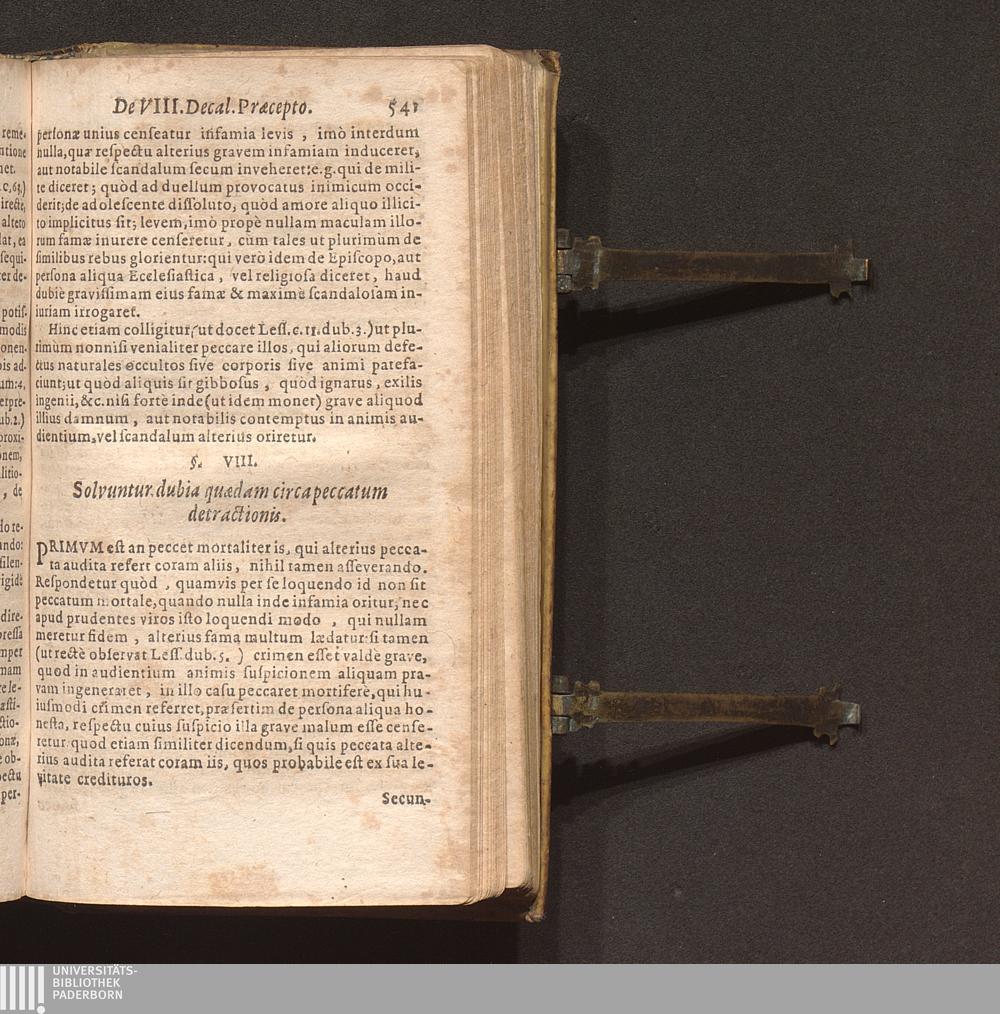 De VIII. Decal. Præcepto. 541
personæ unius censeatur infamia levis, imò interdum
nulla, quæ respectu alterius gravem infamiam induceret,
aut notabile scandalum secum inveheret: e.g. qui de mili-
te diceret; quòd ad duellum provocatus inimicum occi-
derit; de adolescente dissoluto, quòd amore aliquo illici-
to implicitus sit; levem, imò propè nullam maculam illo-
rum famæ inurere censeretur, cùm tales ut plurimùm de
similibus rebus glorientur: qui verò idem de Episcopo, aut
persona aliqua Ecclesiastica, vel religiosa diceret, haud
dubiè gravissimam eius famæ & maximè scandalosam in-
iuriam irrogaret.
Hinc etiam colligitur, (ut docet Less. c. 11. dub. 3.) ut plu-
rimùm nonnisi venialiter peccare illos, qui aliorum defe-
ctus naturales occultos sive corporis sive animi patefa-
ciunt; ut quòd aliquis sit gibbosus, quòd ignarus, exilis
ingenii, &c. nisi fortè inde (ut idem monet) grave aliquod
illius damnum, aut notabilis contemptus in animis au-
dientium, vel scandalum alterius oriretur.
§. VIII.
Solvuntur dubia quædam circa peccatum
detractionis.
PRIMVM est an peccet mortaliter is, qui alterius pecca-
ta audita refert coram aliis, nihil tamen asseverando.
Respondetur quòd, quamvis per se loquendo id non sit
peccatum mortale, quando nulla inde infamia oritur, nec
apud prudentes viros isto loquendi modo, qui nullam
meretur fidem, alterius fama multum lædatur: si tamen
(ut rectè observat Less. dub. 5.) crimen esset valdè grave,
quod in audientium animis suspicionem aliquam pra-
vam ingeneraret, in illo casu peccaret mortiferè, qui hu-
iusmodi crimen referret, præsertim de persona aliqua ho-
nesta, respectu cuius suspicio illa grave malum esse cense-
retur: quod etiam similiter dicendum, si quis peccata alte-
rius audita referat coram iis, quos probabile est ex sua le-
vitate credituros.
Secun-
UNIVERSITÄTS-
BIBLIOTHEK
PADERBORN